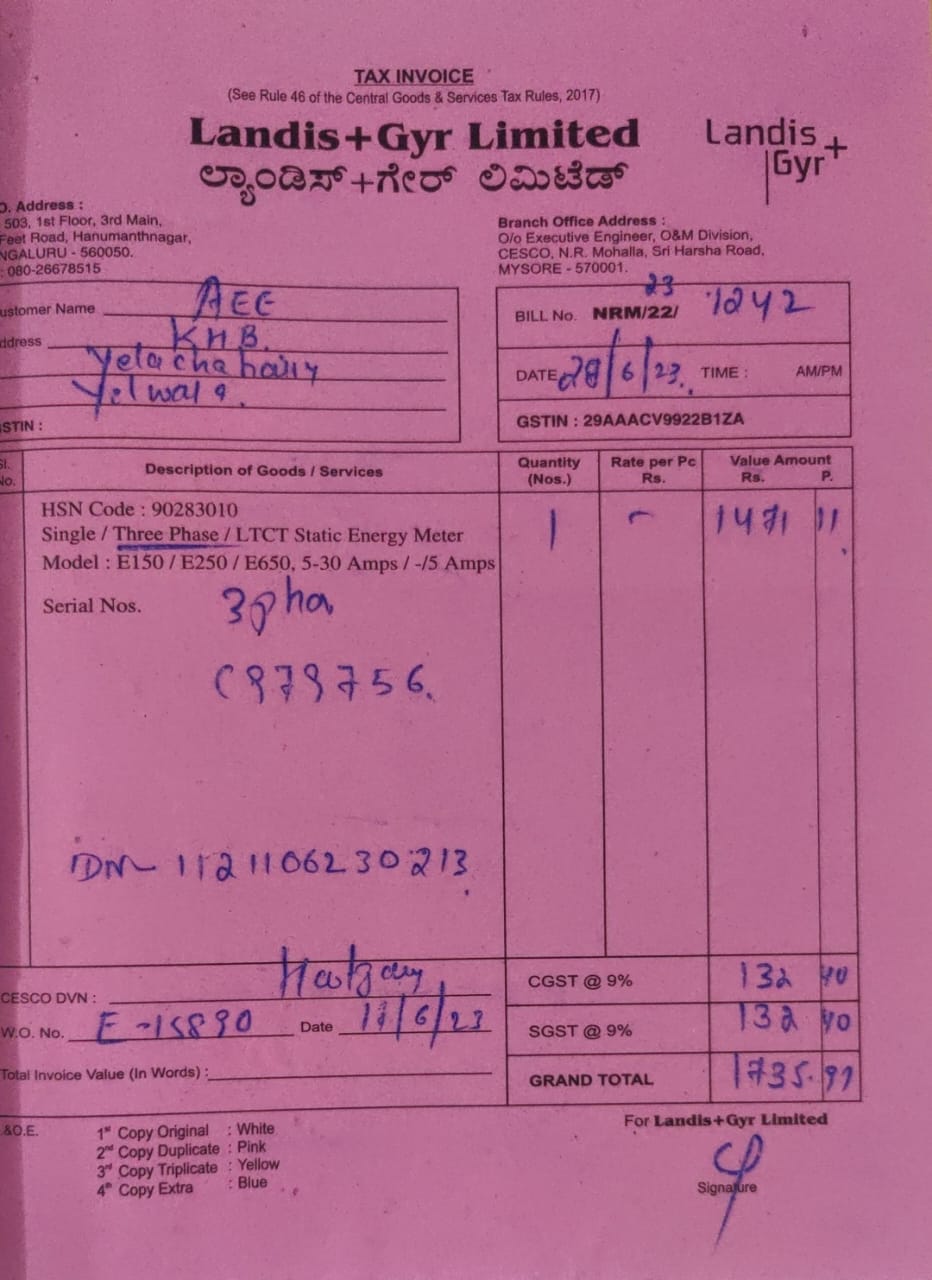 TAX INVOICE
(See Rule 46 of the Central Goods & Services Tax Rules, 2017)
Landis+Gyr Limited
Landis+Gyr
ಲ್ಯಾಂಡಿಸ್+ಗೇರ್ ಲಿಮಿಟೆಡ್
O. Address :
503, 1st Floor, 3rd Main,
Feet Road, Hanumanthnagar,
NGALURU - 560050.
: 080-26678515
Branch Office Address :
O/o Executive Engineer, O&M Division,
CESCO, N.R. Mohalla, Sri Harsha Road,
MYSORE - 570001.
ustomer Name AEE
ddress KHB.
Yelwala.
STIN :
BILL No. NRM/22/ 23 1242
DATE 28/6/23. TIME : AM/PM
GSTIN : 29AAACV9922B1ZA
Sl. No. Description of Goods / Services Quantity (Nos.) Rate per Pc Rs. Value Amount Rs. P.
HSN Code : 90283010
Single / Three Phase / LTCT Static Energy Meter 1 - 1471 11.
Model : E150 / E250 / E650, 5-30 Amps / -/5 Amps
Serial Nos. 3pha
C979756.
DN- 1121106230213
CESCO DVN :
CGST @ 9% 132 40
W.O. No. E-15890 Date 17/6/23
SGST @ 9% 132 40
Total Invoice Value (In Words) :
GRAND TOTAL 1735. 91
&O.E.
1st Copy Original : White
2nd Copy Duplicate : Pink
3rd Copy Triplicate : Yellow
4th Copy Extra : Blue
For Landis+Gyr Limited
Signature